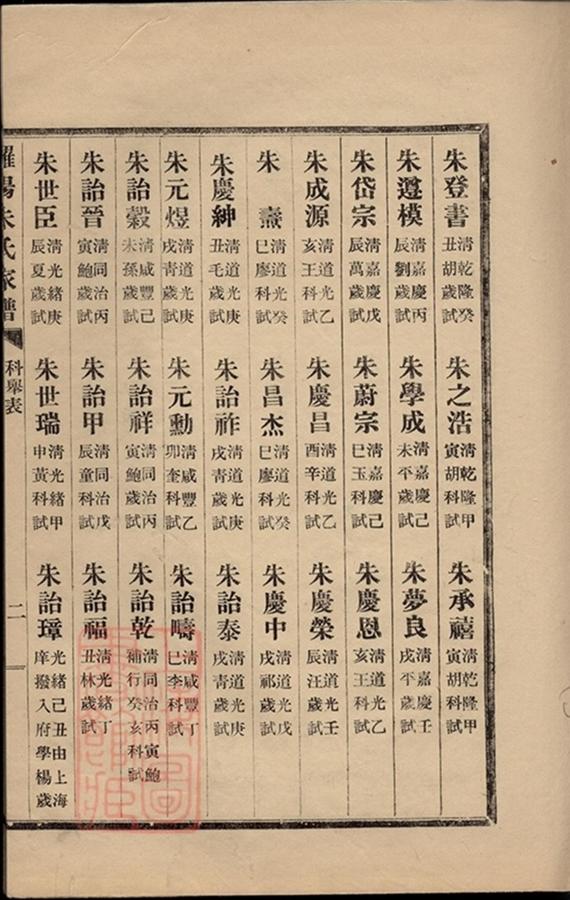 朱登書 清乾隆癸丑胡歲試 朱之浩 清乾隆甲寅胡科試 朱承禧 清乾隆甲寅胡科試
朱遵模 清嘉慶丙辰劉歲試 朱學成 清嘉慶己未平歲試 朱夢良 清嘉慶壬戌平歲試
朱岱宗 清嘉慶戊辰萬歲試 朱蔚宗 清嘉慶己巳玉科試 朱慶恩 清道光乙亥王科試
朱成源 清道光乙亥王科試 朱慶昌 清道光乙酉辛科試 朱慶榮 清道光壬辰汪歲試
朱燾 清道光癸巳廖科試 朱昌杰 清道光癸巳廖科試 朱慶中 清道光戊戌祁歲試
朱慶紳 清道光庚丑毛歲試 朱詒祚 清道光庚戌青歲試 朱詒泰 清道光庚戌青歲試
朱元煜 清道光庚戌青歲試 朱元勳 清咸豐乙卯奎科試 朱詒疇 清咸豐丁巳李科試
朱詒穀 清咸豐己未孫歲試 朱詒祥 清同治丙寅鮑歲試 朱詒乾 清同治丙寅鮑補行癸亥科試
朱詒晉 清同治丙寅鮑歲試 朱詒甲 清同治戊辰童科試 朱詒福 清光緒丁丑林歲試
朱世臣 清光緒庚辰夏歲試 朱世瑞 清光緒甲申黃科試 朱詒璋 光緒己丑由上海庠撥入府學楊歲
羅陽朱氏家譜 科舉表 二